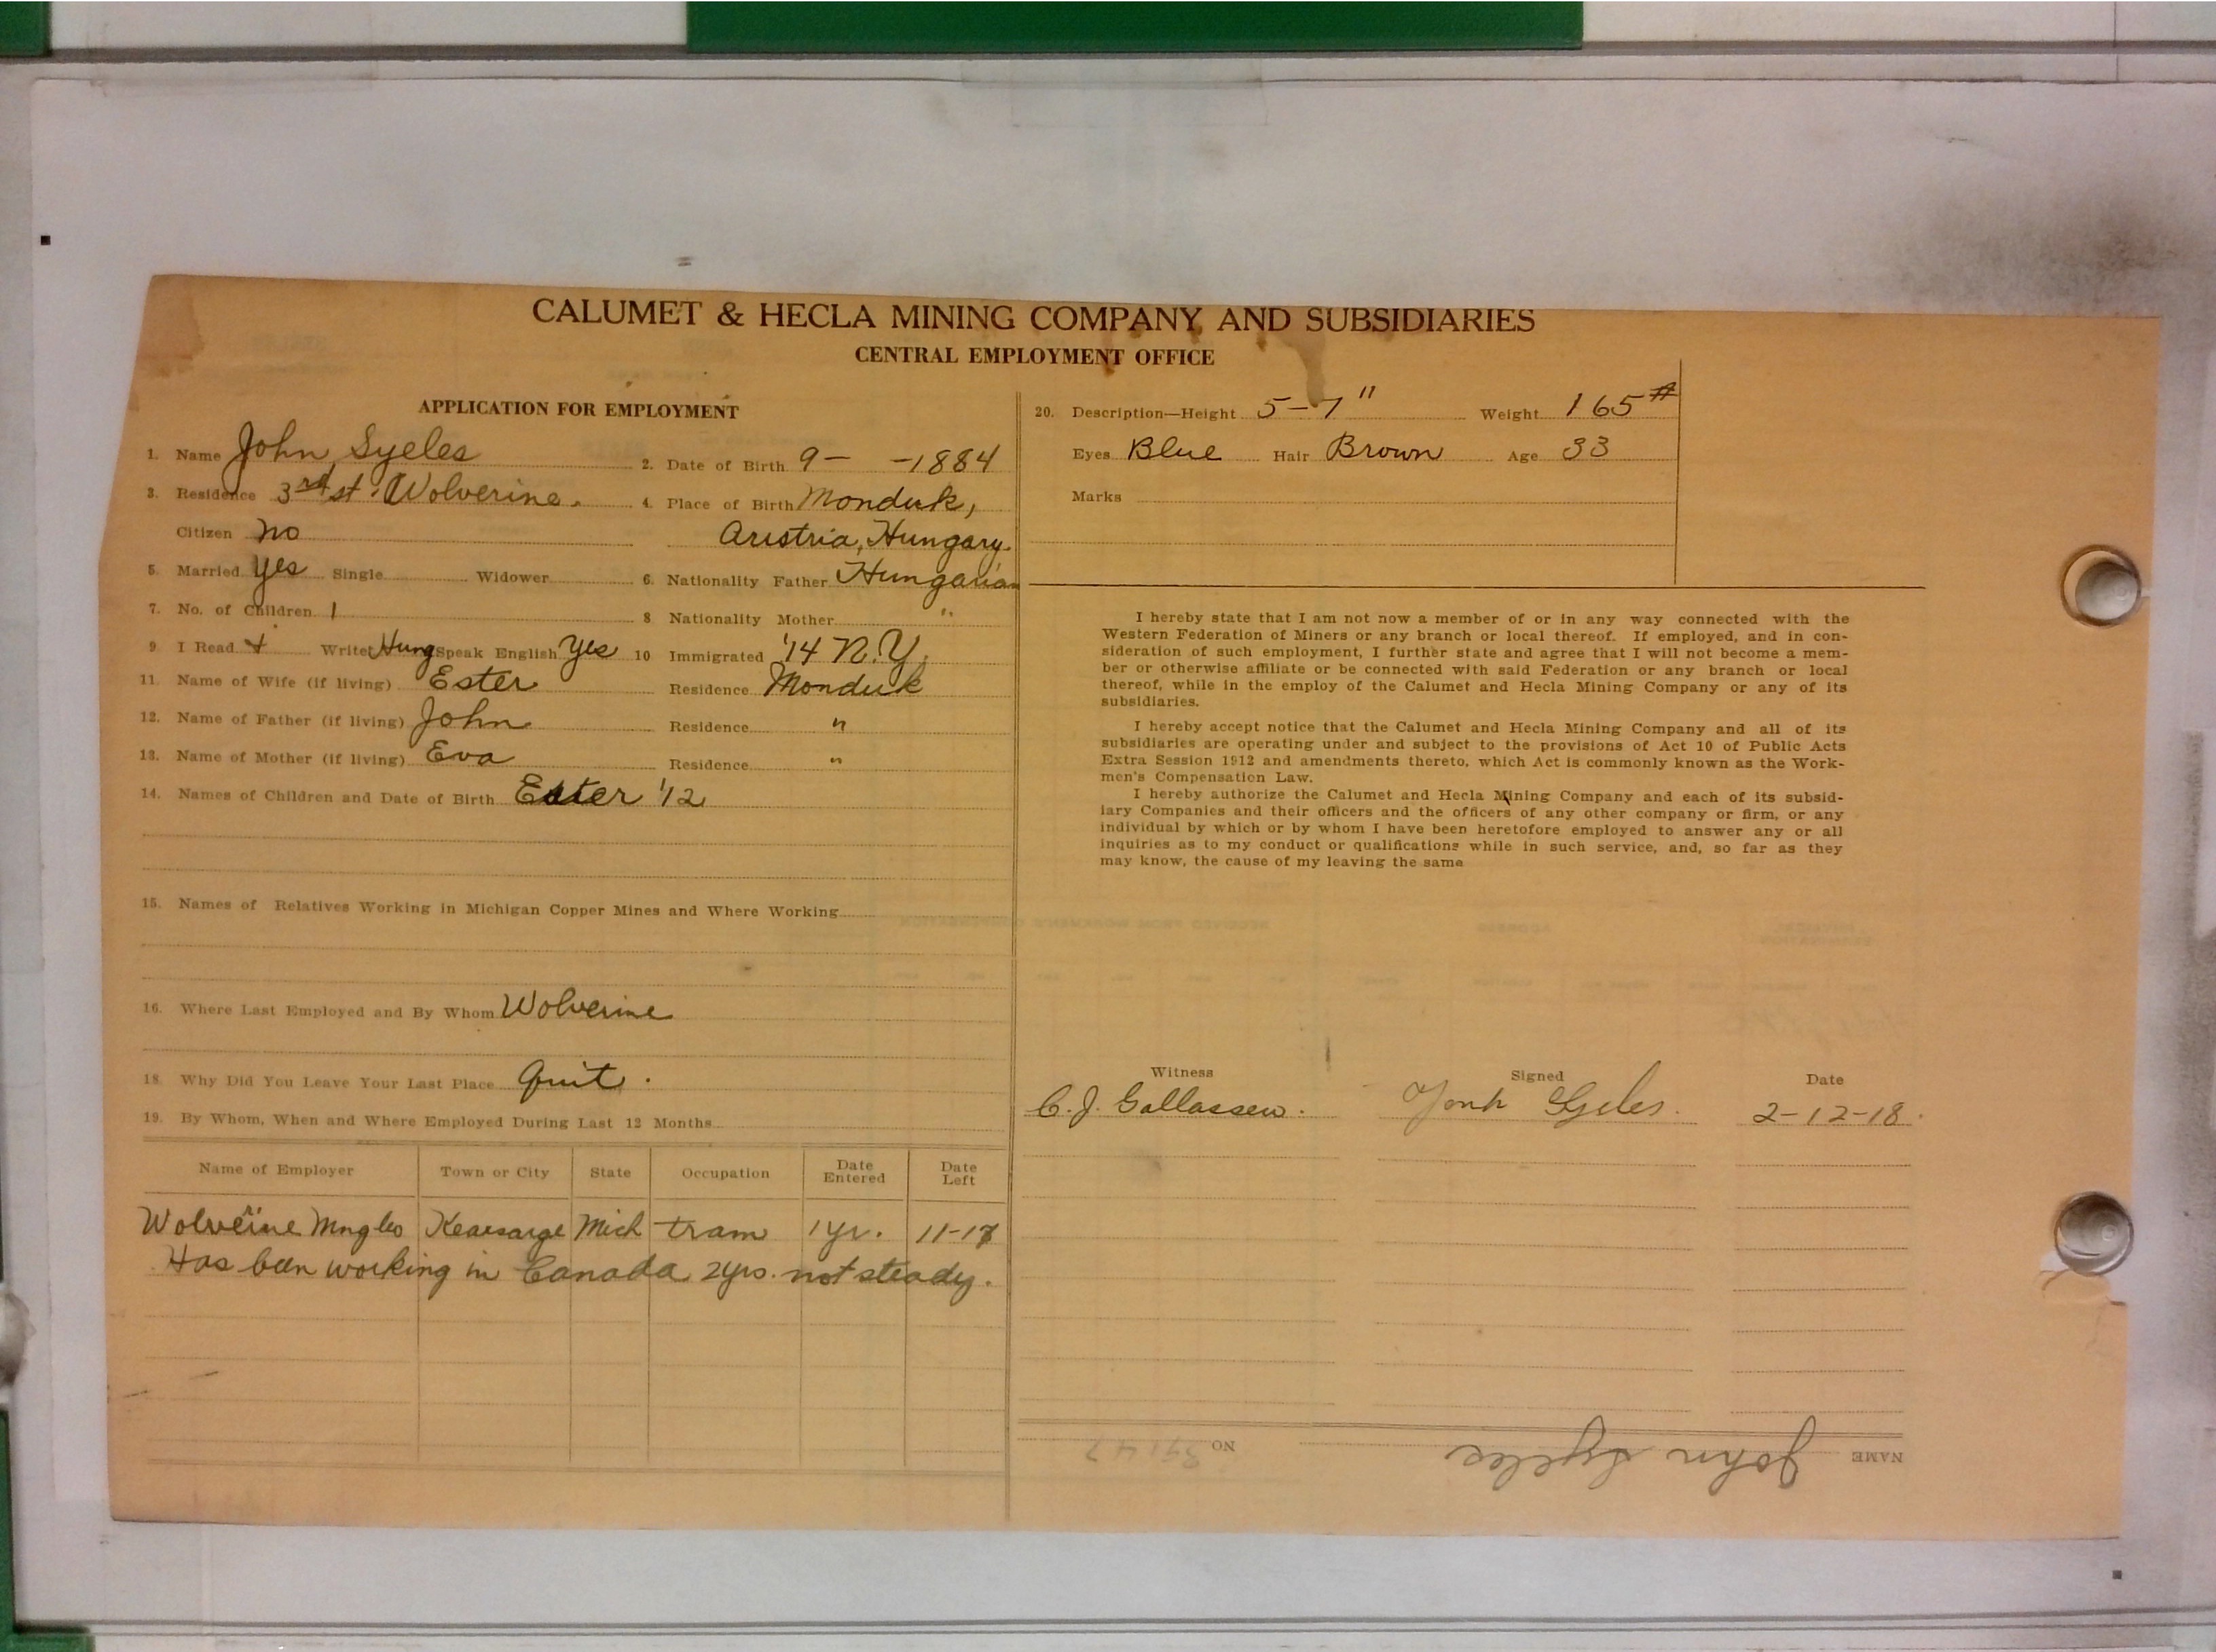 CALUMET & HECLA MINING COMPANY AND SUBSIDIARIES
CENTRAL EMPLOYMENT OFFICE
APPLICATION FOR EMPLOYMENT
1. Name John Syeles 2. Date of Birth 9- -1884
3. Residence 3rd st. Wolverine. 4. Place of Birth Monduk,
Citizen no Austria, Hungary.
5. Married yes Single Widower 6. Nationality Father Hungarian
7. No. of Children 1 8 Nationality Mother "
9. I Read + Write Hung Speak English Yes 10 Immigrated '14 N.Y.
11. Name of Wife (if living) Ester Residence Monduk
12. Name of Father (if living) John Residence "
13. Name of Mother (if living) Eva Residence "
14. Names of Children and Date of Birth Ester '12
15. Names of Relatives Working in Michigan Copper Mines and Where Working
16. Where Last Employed and By Whom Wolverine
18. Why Did You Leave Your Last Place Quit.
19. By Whom, When and Where Employed During Last 12 Months
Name of Employer Town or City State Occupation Date Entered Date Left
Wolverine Mng Co Kearsarge Mich tram 1 yr. 11-17
Has been working in Canada 2 yrs. not steady.
20. Description—Height 5-7" Weight 165#
Eyes Blue Hair Brown Age 33
Marks
I hereby state that I am not now a member of or in any way connected with the
Western Federation of Miners or any branch or local thereof. If employed, and in con-
sideration of such employment, I further state and agree that I will not become a mem-
ber or otherwise affiliate or be connected with said Federation or any branch or local
thereof, while in the employ of the Calumet and Hecla Mining Company or any of its
subsidiaries.
I hereby accept notice that the Calumet and Hecla Mining Company and all of its
subsidiaries are operating under and subject to the provisions of Act 10 of Public Acts
Extra Session 1912 and amendments thereto, which Act is commonly known as the Work-
men's Compensation Law.
I hereby authorize the Calumet and Hecla Mining Company and each of its subsid-
iary Companies and their officers and the officers of any other company or firm, or any
individual by which or by whom I have been heretofore employed to answer any or all
inquiries as to my conduct or qualifications while in such service, and, so far as they
may know, the cause of my leaving the same
Witness Signed Date
C. J. Gallassew. 2-12-18.
NAME John Syeles NO 39147